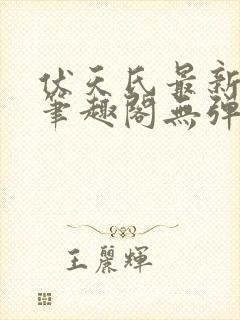 伏天氏最新
笔趣阁無弹
王麗輝